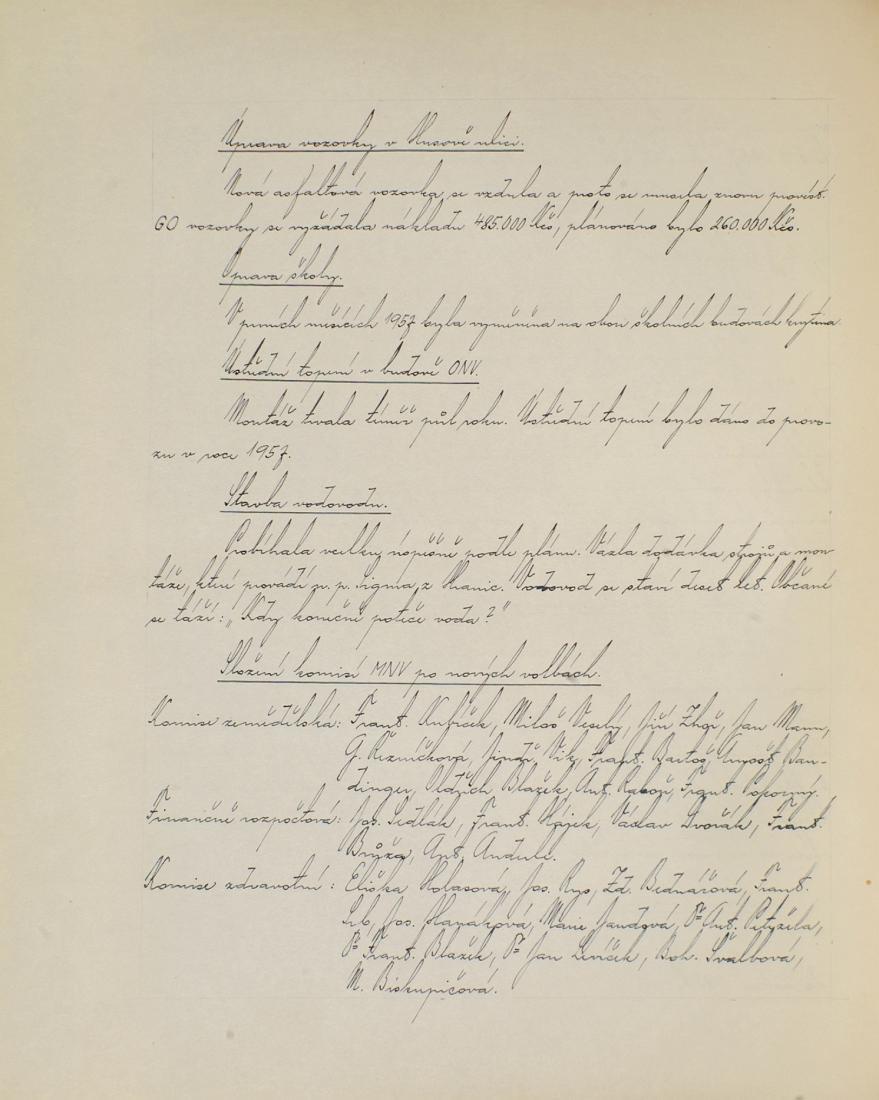 Úprava vozovky v Husově ulici.
Nová asfaltová vozovka se vzdula a proto se musela znovu provést.
GO vozovky si vyžádala nákladu 485.000 Kčs, plánováno bylo 260.000 Kčs.
Oprava školy.
V prvních měsících 1957 byla vyměněna na obou školních budovách krytina.
Ústřední topení v budově ONV.
Montáž trvala téměř půl roku. Ústřední topení bylo dáno do provo-
zu v roce 1957.
Stavba vodovodu.
Probíhala vcelku úspěšně podle plánu. Vázla dodávka strojů a mon
táže, které provádí n. p. Sigma z Hranic. Vodovod se staví deset let. Občané
se táží: „Kdy konečně poteče voda?"
Složení komisí MNV po nových volbách.
Komise zemědělská: Frant. Kubíček, Miloš Veselý, Jiří Jan Mann,
G. Řezníčková, Jindř. Vik, Frant. Bartoš, Arnošt Ban-
dinger, Oldřich Blažek, Ant. Frant. Pokorný.
Finančně rozpočtová: Jos. Sedlák, Frant. Hájek, Václav Dvořák, Frant.
Brůža, Ant. Anderle.
Komise zdravotní: Eliška Holasová, Jos. Rys, Zd. Bednářová, Frant.
Srb, Jos. Hanáková, Marie Jandová, Dr Ant. Petržela,
Dr Frant. Blažek, Dr Jan Levíček, Boh. Švalbová,
M. Biskupičová.